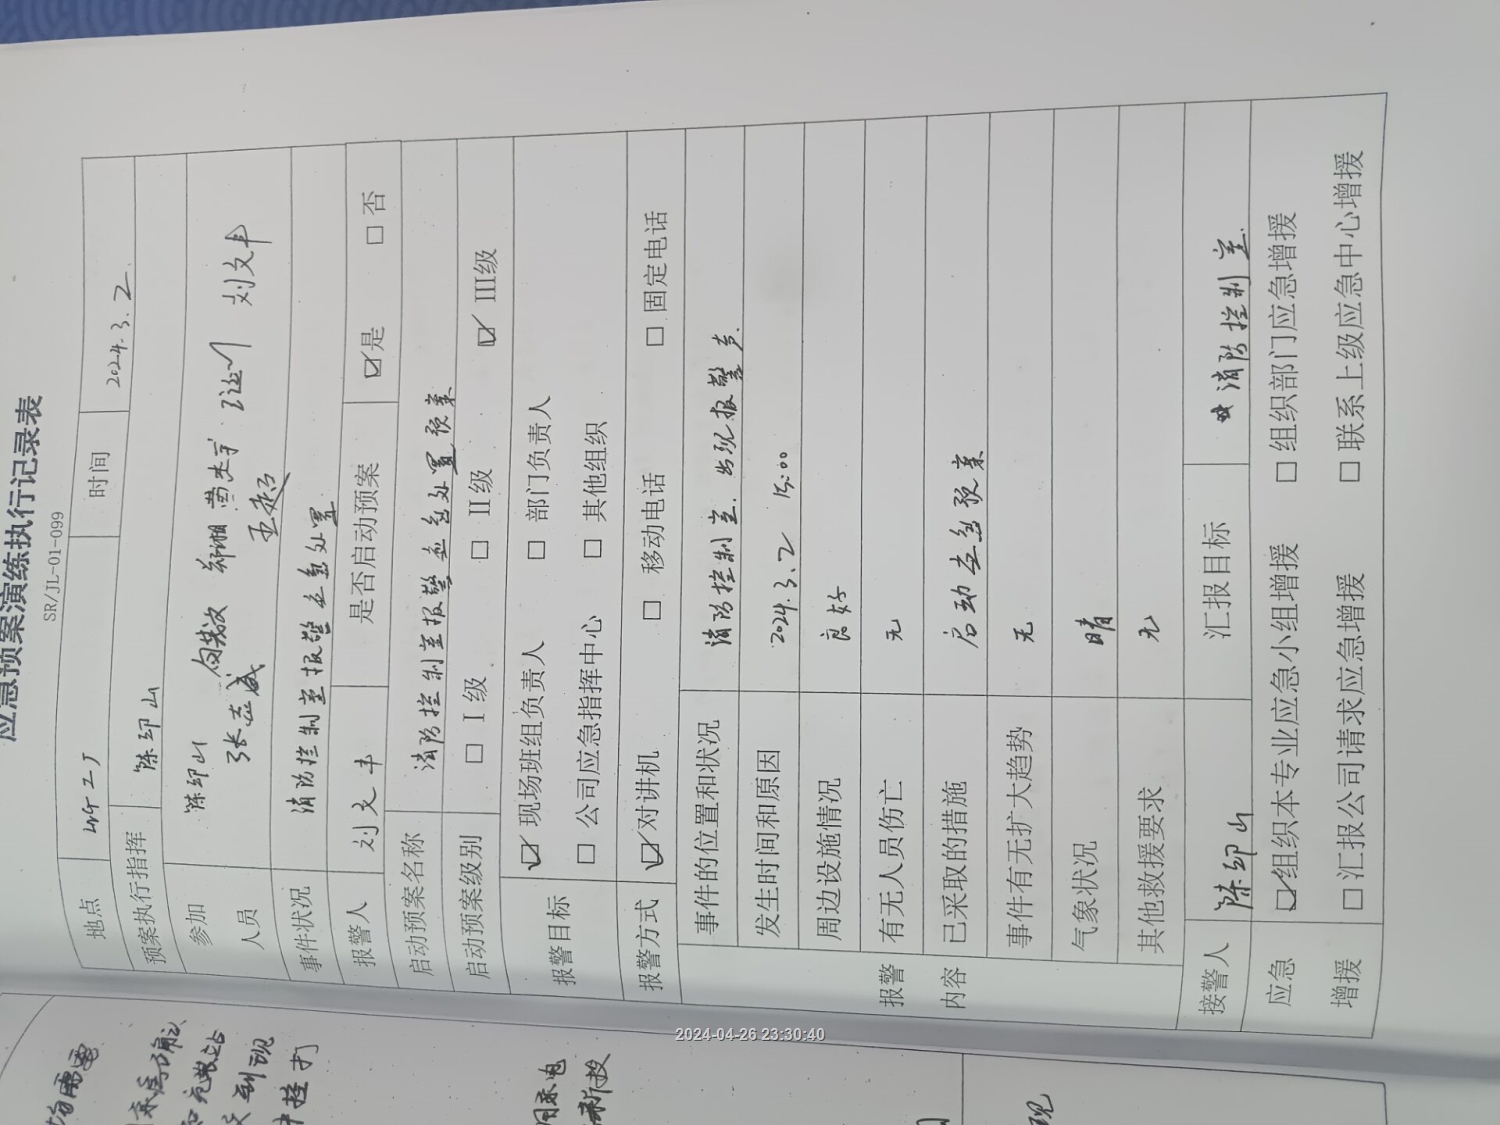 应急预案演练执行记录表
SR/JL-01-099
地点 时间 2024.3.2
预案执行指挥 陈印山
参加人员 陈印山 刘文丰
张志诚 王超
事件状况 消防控制室报警应急处置
报警人 刘文丰 是否启动预案 ☑是 □否
启动预案名称 消防控制室报警应急处置预案
启动预案级别 □ I级 □ II级 ☑ III级
报警目标 ☑ 现场班组负责人 □ 部门负责人
□ 公司应急指挥中心 □ 其他组织
报警方式 ☑ 对讲机 □ 移动电话 □ 固定电话
报警内容
事件的位置和状况 消防控制室.出现报警声.
发生时间和原因 2024.3.2 15:00
周边设施情况 良好
有无人员伤亡 无
已采取的措施 启动应急预案
事件有无扩大趋势 无
气象状况 晴
其他救援要求 无
接警人 陈印山 汇报目标 消防控制室.
应急增援 ☑组织本专业应急小组增援 □ 组织部门应急增援
□ 汇报公司请求应急增援 □ 联系上级应急中心增援
2024-04-26 23:30:40